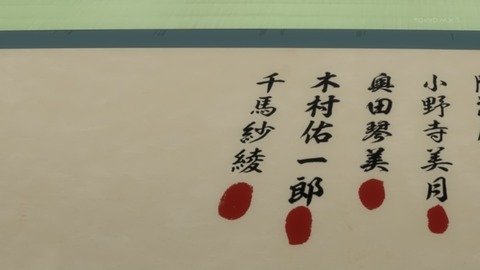 小野寺美月
奥田琴美
木村佑一郎
千馬紗綾